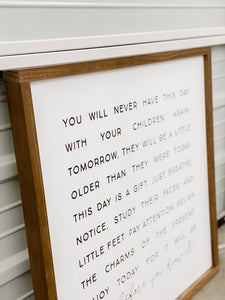 YOU WILL NEVER HAVE THIS DAY
WITH YOUR CHILDREN AGAIN.
TOMORROW, THEY WILL BE A LITTLE
OLDER THAN THEY WERE TODAY.
THIS DAY IS A GIFT. JUST BREATHE,
NOTICE, STUDY THEIR FACES AND
LITTLE FEET. PAY ATTENTION. RELISH
THE CHARMS OF THE PRESENT.
ENJOY TODAY, FOR IT WILL BE
before you know it.